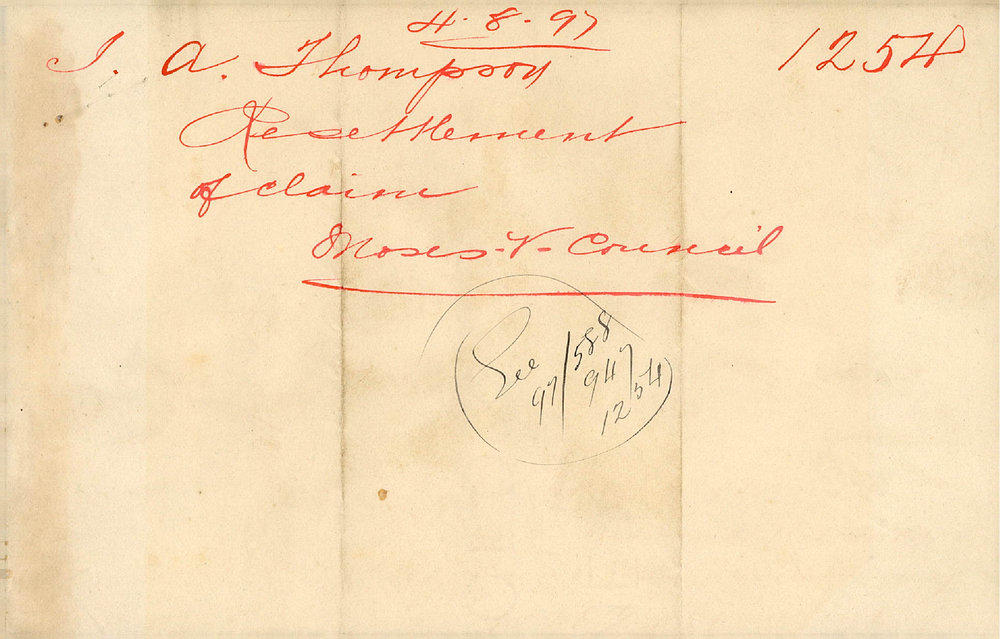 4-8-97
I. A. Thompson 1254
Resettlement
of claim
Moses-V-Council
See
97/588
947
1254